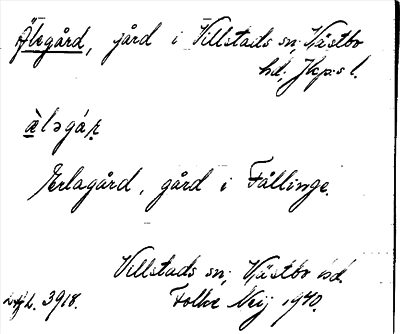 Älegård, gård i Villstads sn; Västbo
hd; Jkp:s l.
ä̀lǝgá
Erlagård, gård i Fållinge.
Villstads sn; Västbo hd.
3918. Folke Neij 1940.